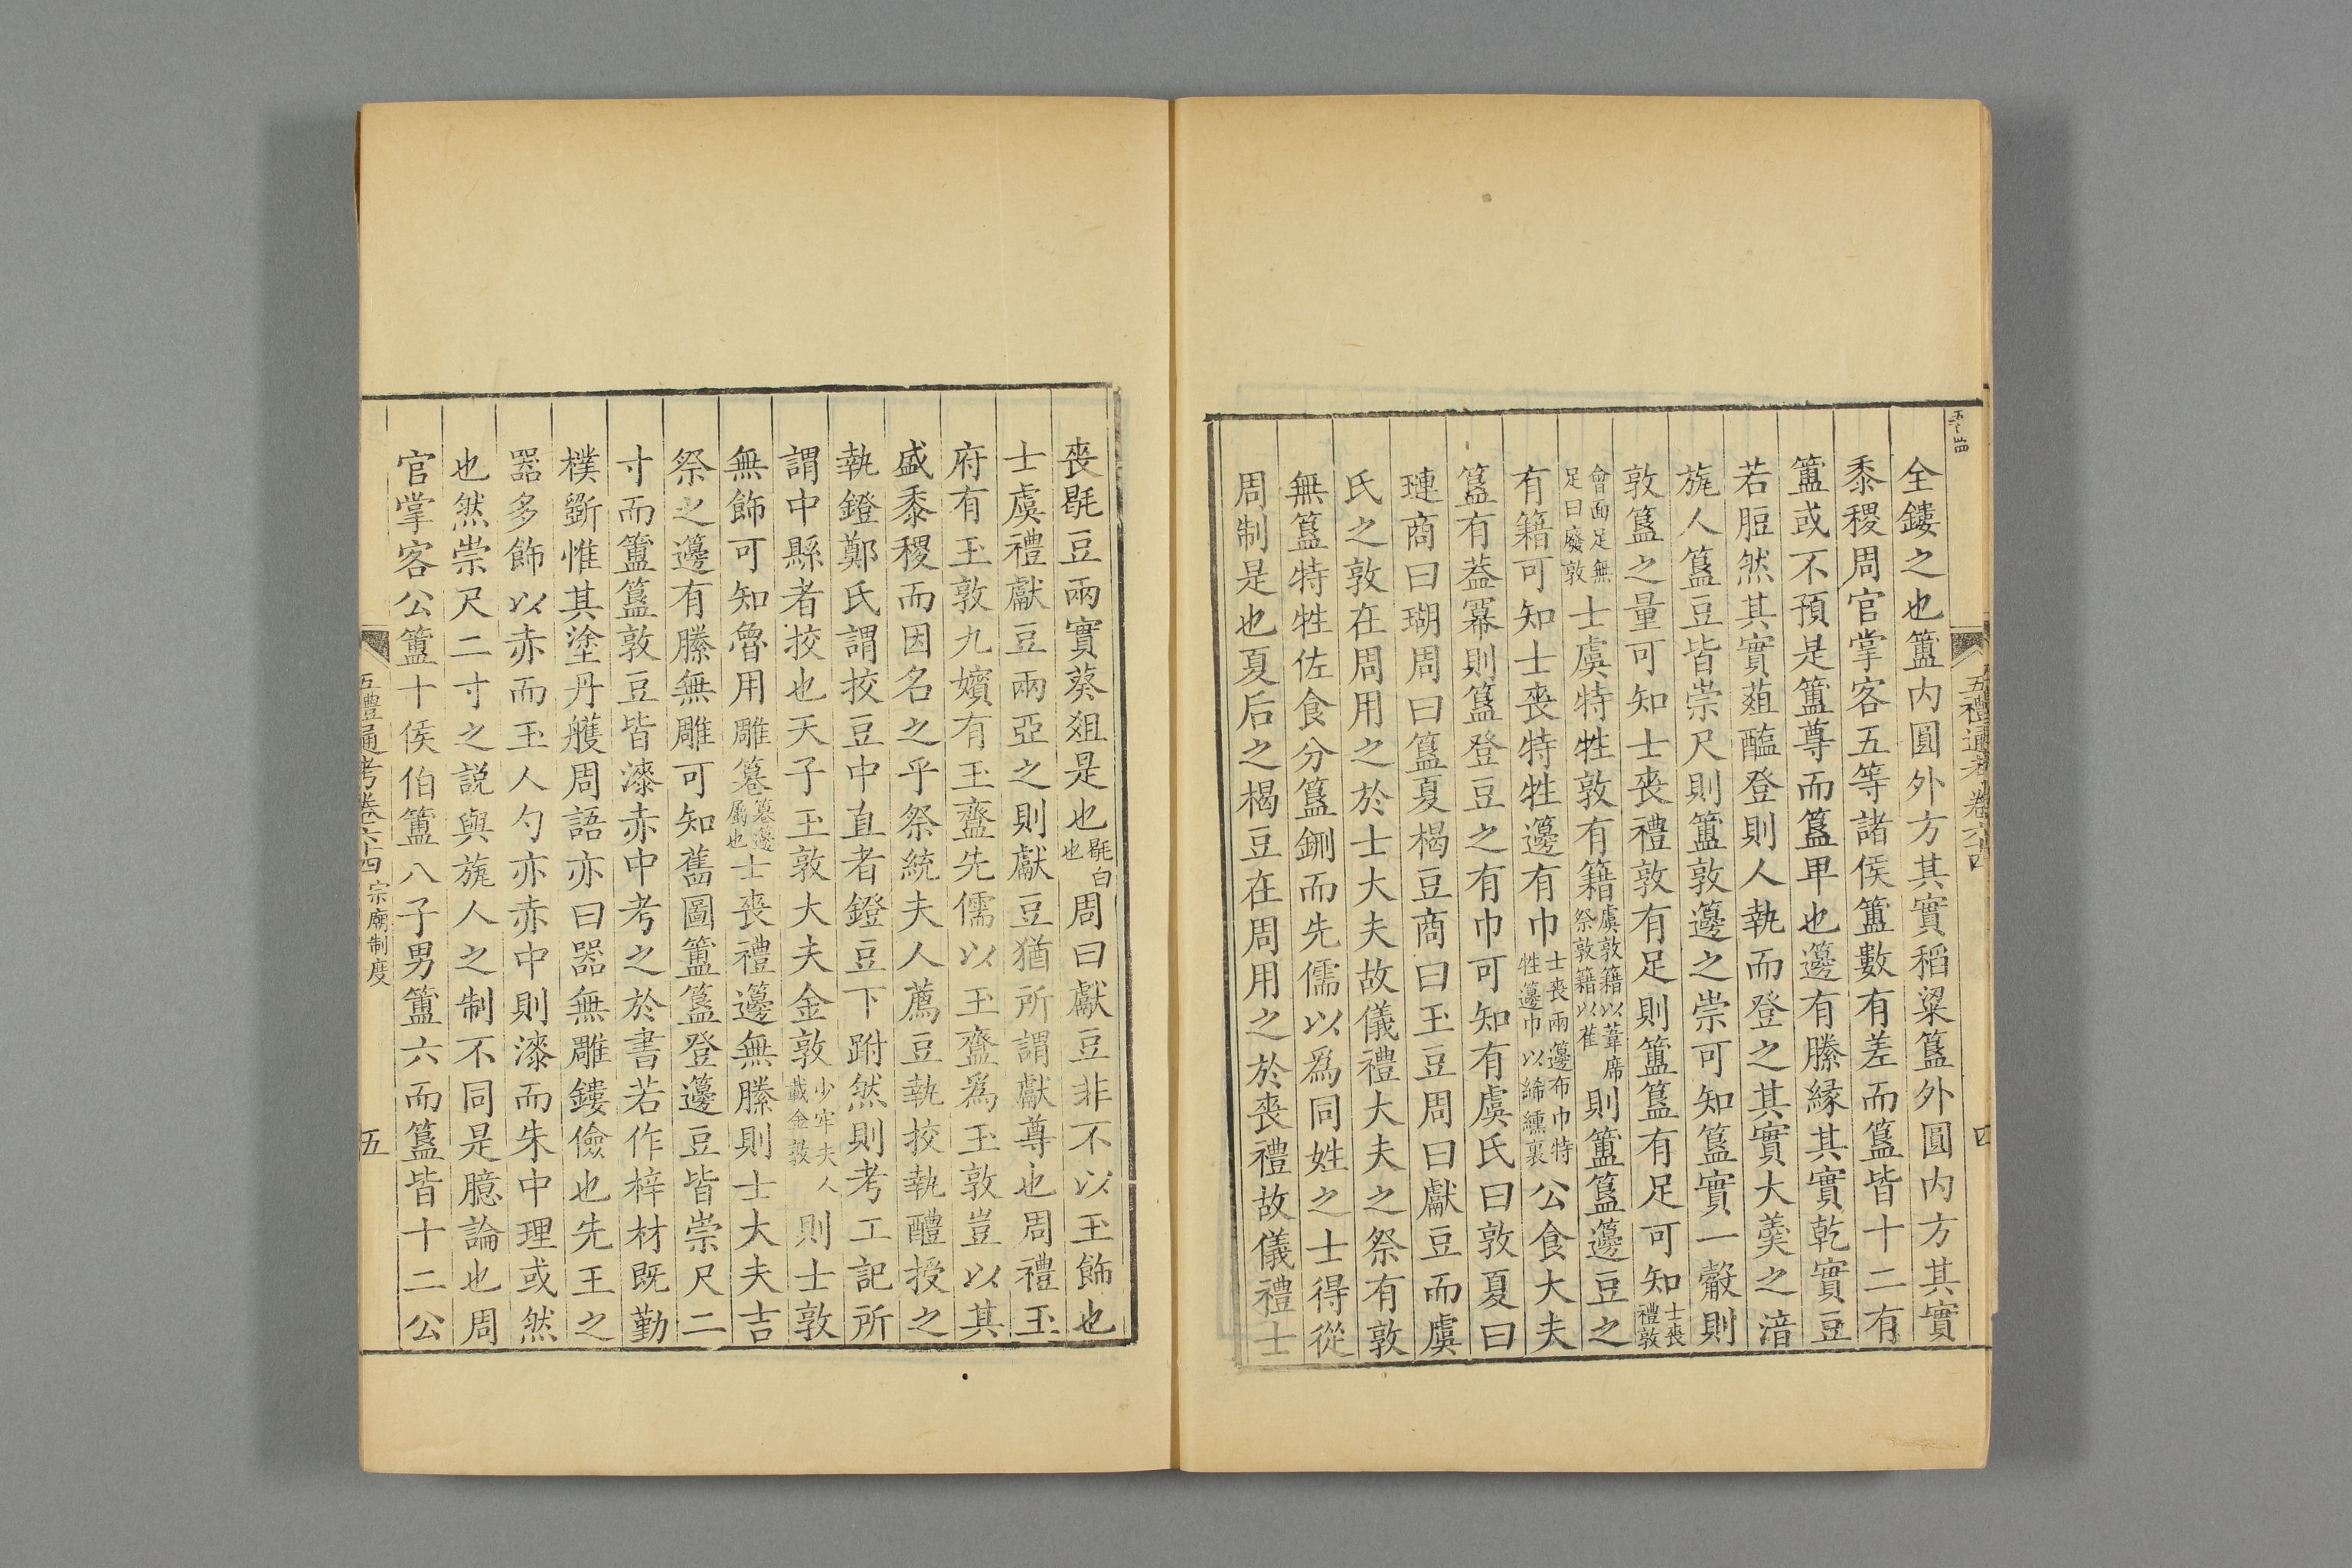 五禮通考卷六十四
四
全鏤之也簠内圓外方其實稻粱簋外圓内方其實
黍稷周官掌客五等諸侯簠數有差而簋皆十二有
簠或不預是簠尊而簋卑也籩有縢緣其實乾實豆
若脰然其實葅醢登則人執而登之其實大羹之湆
旊人簋豆皆崇尺則簠敦籩之崇可知簋實一觳則
敦簋之量可知士喪禮敦有足則簠簋有足可知士喪禮敦
會面足無足曰廢敦士虞特牲敦有籍虞敦籍以葦席祭敦籍以萑則簠簋籩豆之
有籍可知士喪特牲籩有巾士喪兩籩布巾特牲籩巾以綌纁裏公食大夫
簋有葢冪則簋登豆之有巾可知有虞氏曰敦夏曰
璉商曰瑚周曰簋夏楬豆商曰玉豆周曰獻豆而虞
氏之敦在周用之於士大夫故儀禮大夫之祭有敦
無簋特牲佐食分簋鉶而先儒以為同姓之士得從
周制是也夏后之楬豆在周用之於喪禮故儀禮士
喪毼豆兩實葵葅是也毼白也周曰獻豆非不以玉飾也
士虞禮獻豆兩亞之則獻豆猶所謂獻尊也周禮玉
府有玉敦九嬪有玉齍先儒以玉齍為玉敦豈以其
盛黍稷而因名之乎祭統夫人薦豆執挍執醴授之
執鐙鄭氏謂挍豆中直者鐙豆下跗然則考工記所
謂中縣者挍也天子玉敦大夫金敦少牢夫人載金敦則士敦
無飾可知魯用雕篹篹籩屬也士喪禮籩無縢則士大夫吉
祭之籩有縢無雕可知舊圖簠簋登籩豆皆崇尺二
寸而簠簋敦豆皆漆赤中考之於書若作梓材既勤
樸斲惟其塗丹雘周語亦曰器無雕鏤儉也先王之
器多飾以赤而玉人勺亦赤中則漆而朱中理或然
也然崇尺二寸之説與旊人之制不同是臆論也周
官掌客公簠十侯伯簠八子男簠六而簋皆十二公
五禮通考卷六十四 宗廟制度
五